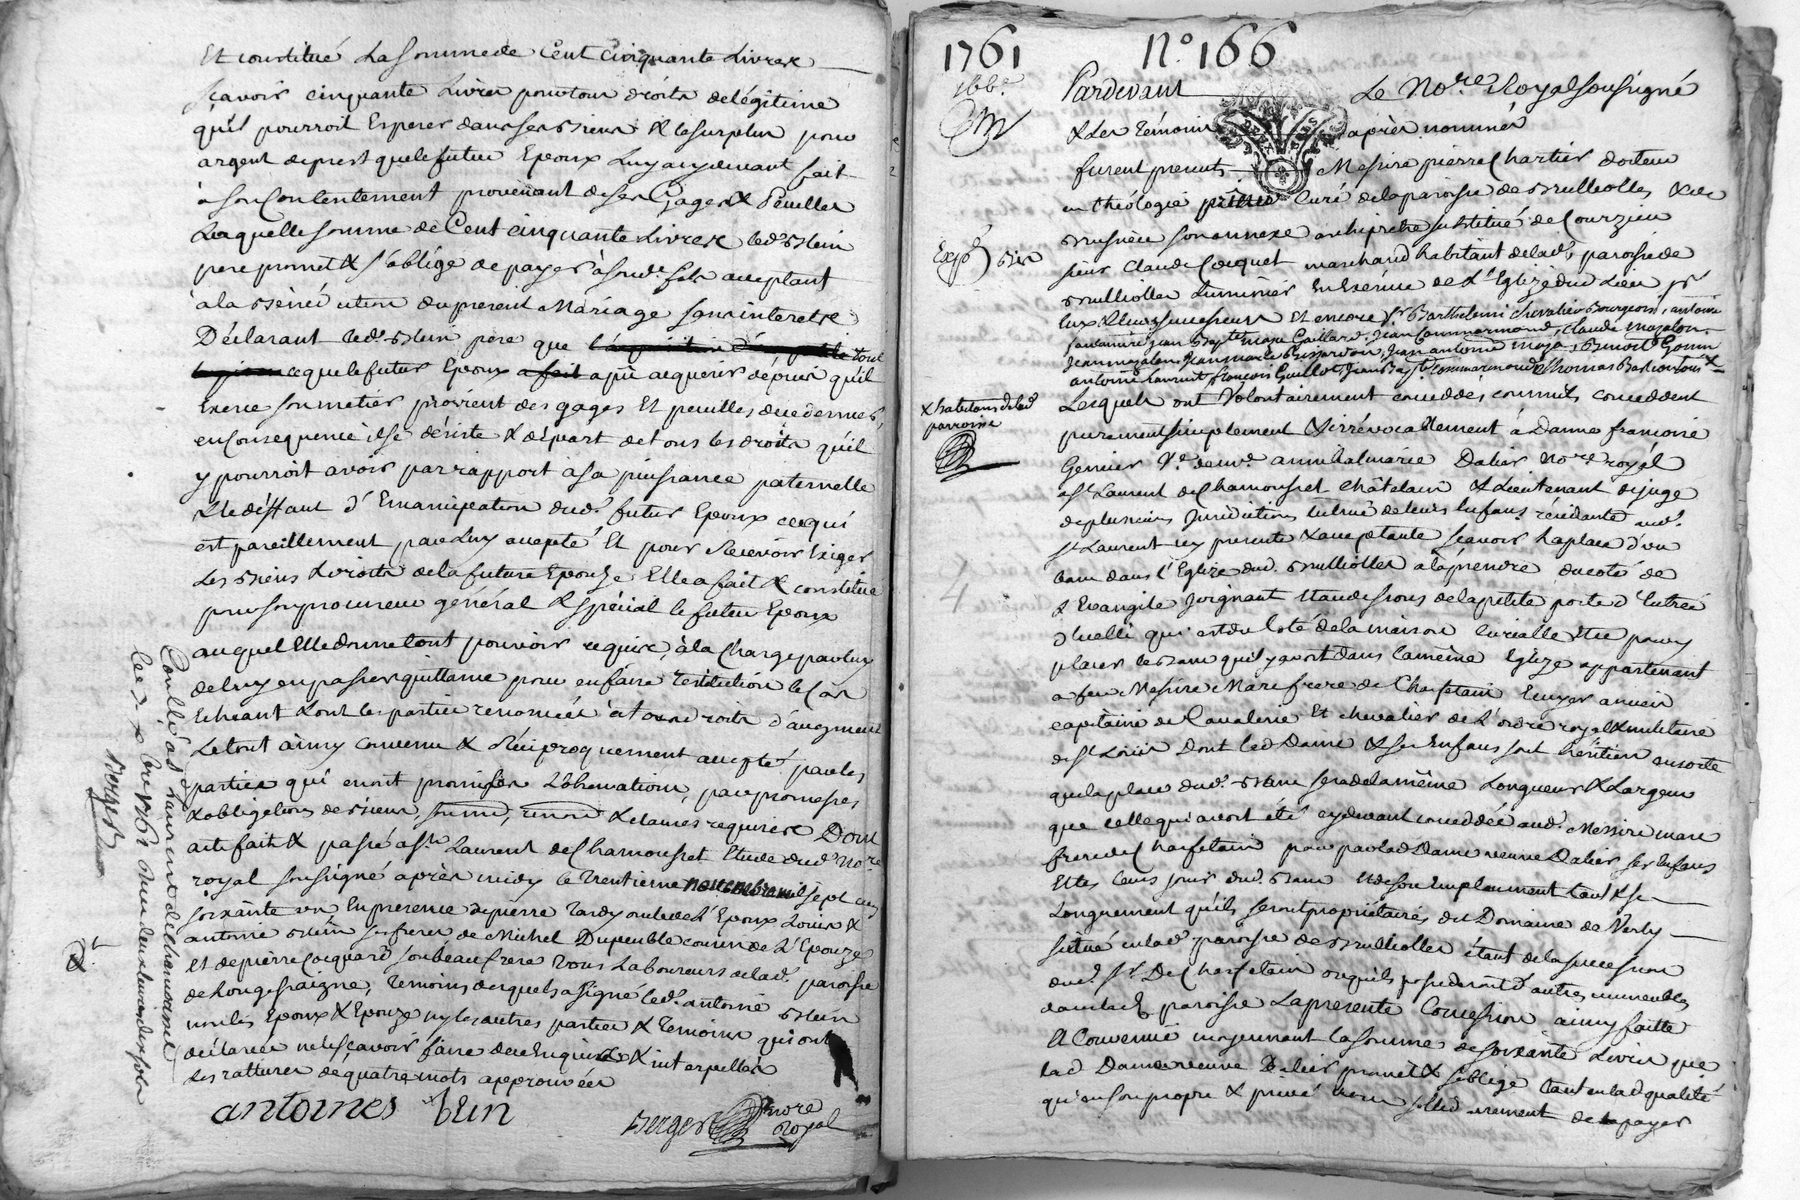 Et constitué la somme de Cent cinquante Livres
sçavoir cinquante Livres pour tous droits de légitime
qu'il pourroit Esperer dans ses biens & le surplus pour
argent de prest que le futur Epoux luy a cydevant fait
à son Contentement provenant de ses Gages & Peuilles
Laquelle somme de Cent cinquante Livres led. blein
pere promet & s'oblige de payer à sond. fils acceptant
à la du present Mariage sans interets
Déclarant led. blein père que tout
ce que le futur Epoux a pû acquerir depuis qu'il
Exerce son metier provient des gages Et peuilles
en consequence il se désiste & départ de tous les droits qu'il
y pourroit avoir par rapport à sa puissance paternelle
& le déffaut d'Emancipation dud. futur Epoux ce qui
est pareillement par luy accepté Et pour Recevoir Exiger
Les biens & droits de la future Epouze Elle a fait & constitué
pour son procureur général & spécial le futur Epoux
auquel Elle donne tout pouvoir requis, à la Charge par luy
de luy en passer quittance pour en faire restitution le Cas
Echeant dont les parties renoncées à tous droits d'augment
Le tout ainsy convenu & Réciproquement accepté par les
parties qui en ont promis L'observation, par promesses
& obligations de biens, soumis, renon. & clauses requises Dont
acte fait & passé à St. Laurent de Chamousset Etude dud. No.re
royal soussigné après midy le trentieme novembre mil sept cens
soixante un En presence de pierre Tardy oncle de l'Epoux Louis &
antoine blein ses freres de Michel Dupeuble cousin de L'Epouze
et de pierre Coquard son beau frere tous Laboureurs de lad. paroisse
de Longessaigne, témoins desquels a signé led. antoine blein
non les Epoux & Epouze ny les autres parties & témoins qui ont
déclarés ne sçavoir faire de ce Enquis & interpellés
Les ratturés de quatre mots approuvées
antoines blein
Berger no.re
Royal
Conllé à St Laurent de chamousset
Berger
1761 N° 166
166e
Pardevant Le No.re Royal soussigné
& Les témoins après nommés
furent presents Messire pierre Chartier docteur
en théologie prêtre curé de la paroisse de brullioles & de
son annexe archiprêtre substitué de Courzieu
Expé
sieur Claude Coequet marchand habitant de lad. paroisse de
brullioles Luminier En Exercice de L'Eglize dud Lieu pr
Eux & leurs successeurs Et encore Sr Barthelemi chevalier Bourgeois, antoine
jean Bapte Gaillard, Jean Commarmond, Claude mazalon,
Jean mazalon, Jean marie Bissardon, Jean antoine maza, Benoit Gonin
antoine Laurent francois Guillot Jean Bapte Commarmond & Thomas
x habitans de lad
parroisse
Lesquels ont Volontairement conceddés comme ils conceddent
purement simplement & irrévocablement à Dame francoise
Genevier Ve de me. annibal marie Dalier No.re royal
à St Laurent de Chamousset Châtelain & Lieutenant de juge
de plusieurs Juridictions tutrice de leurs Enfans residante aud.
St Laurent icy presente & acceptante sçavoir la place d'un
banc dans l'Eglize dud. brullioles à la prendre du coté de
L'Evangile joignant Et audessous de la petite porte d'Entrée
d'icelle qui est du coté de la maison curialle Et ce pour y
placer le banc qu'il y avoit dans la même Eglize appartenant
a feu Messire Marc frere de Chastelain Ecuyer ancien
capitaine de Cavalerie Et chevalier de L'ordre royal & militaire
de St Louis dont lad Dame & ses Enfans sont héritiers ensorte
que la place dud. banc sera de la même Longueur & Largeur
que celle qui avoit été cydevant conceddée aud. Messire marc
frere de Chastelain pour par lad Dame veuve Dalier ses Enfans
Et les leurs jouir dud. banc Et de son Emplacement tant & si
Longuement qu'ils seront propriétaires du Domaine de Verly
situé en lad. paroisse de brullioles étant de la succession
dud. Sr. De Chastelain ou qu'ils possederont d'autres immeubles
dans lad. paroisse La presente Concession ainsy faitte
Et Convenue moyennant la somme de soixante Livres que
lad Dame veuve Dalier promet & s'oblige tant en lad qualité
qu'en son propre & privé nom de payer